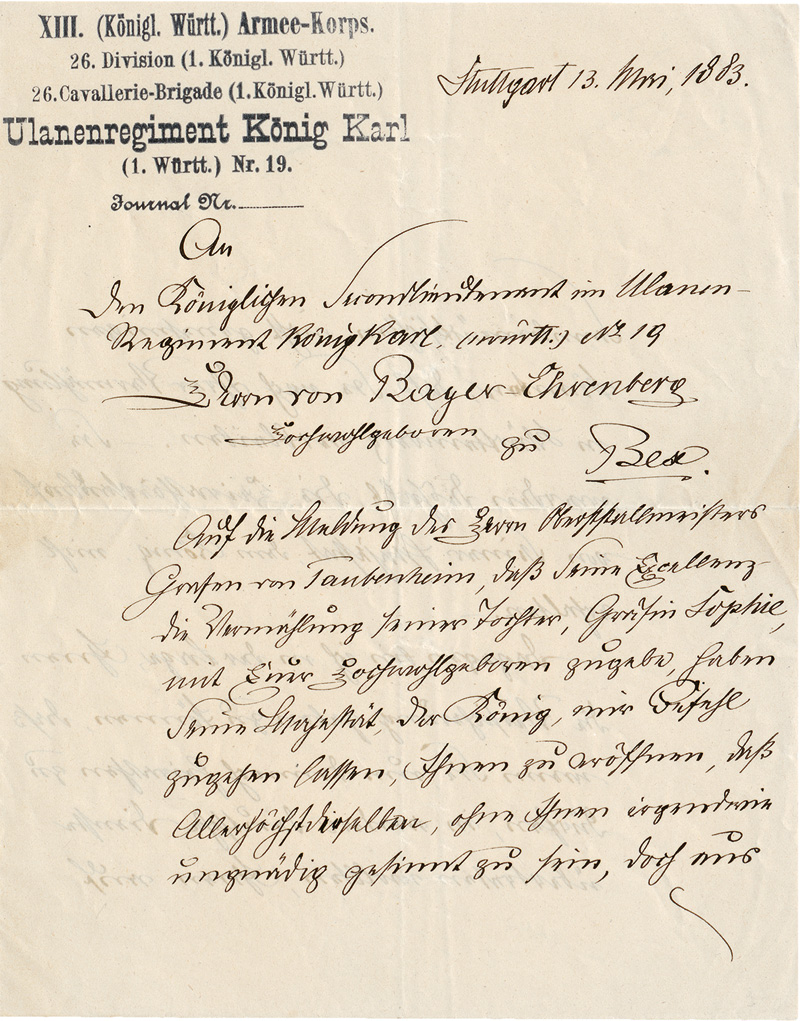 XIII. (Königl. Württ.) Armee-Korps.
26. Division (1. Königl. Württ.)
26. Cavallerie-Brigade (1. Königl. Württ.)
Ulanenregiment König Karl
(1. Württ.) Nr. 19.
Journal Nr.
Stuttgart 13. Mai, 1883.
An
den Königlichen Secondlieutenant im Ulanen-
Regiment König Karl. (württ.) No. 19
Herrn von Bayer-Ehrenberg
Hochwohlgeboren zu Bex.
Auf die Meldung des Herrn Oberststallmeisters
Grafen von Taubenheim, daß Seine Excellenz
die Vermählung seiner Tochter, Gräfin Sophie,
mit Euer Hochwohlgeboren zugebe, haben
Seine Majestät, der König, mir Befehl
zugehen lassen, Ihnen zu eröffnen, daß
Allerhöchstdieselben, ohne Ihnen irgendwie
ungnädig gesinnt zu sein, doch aus